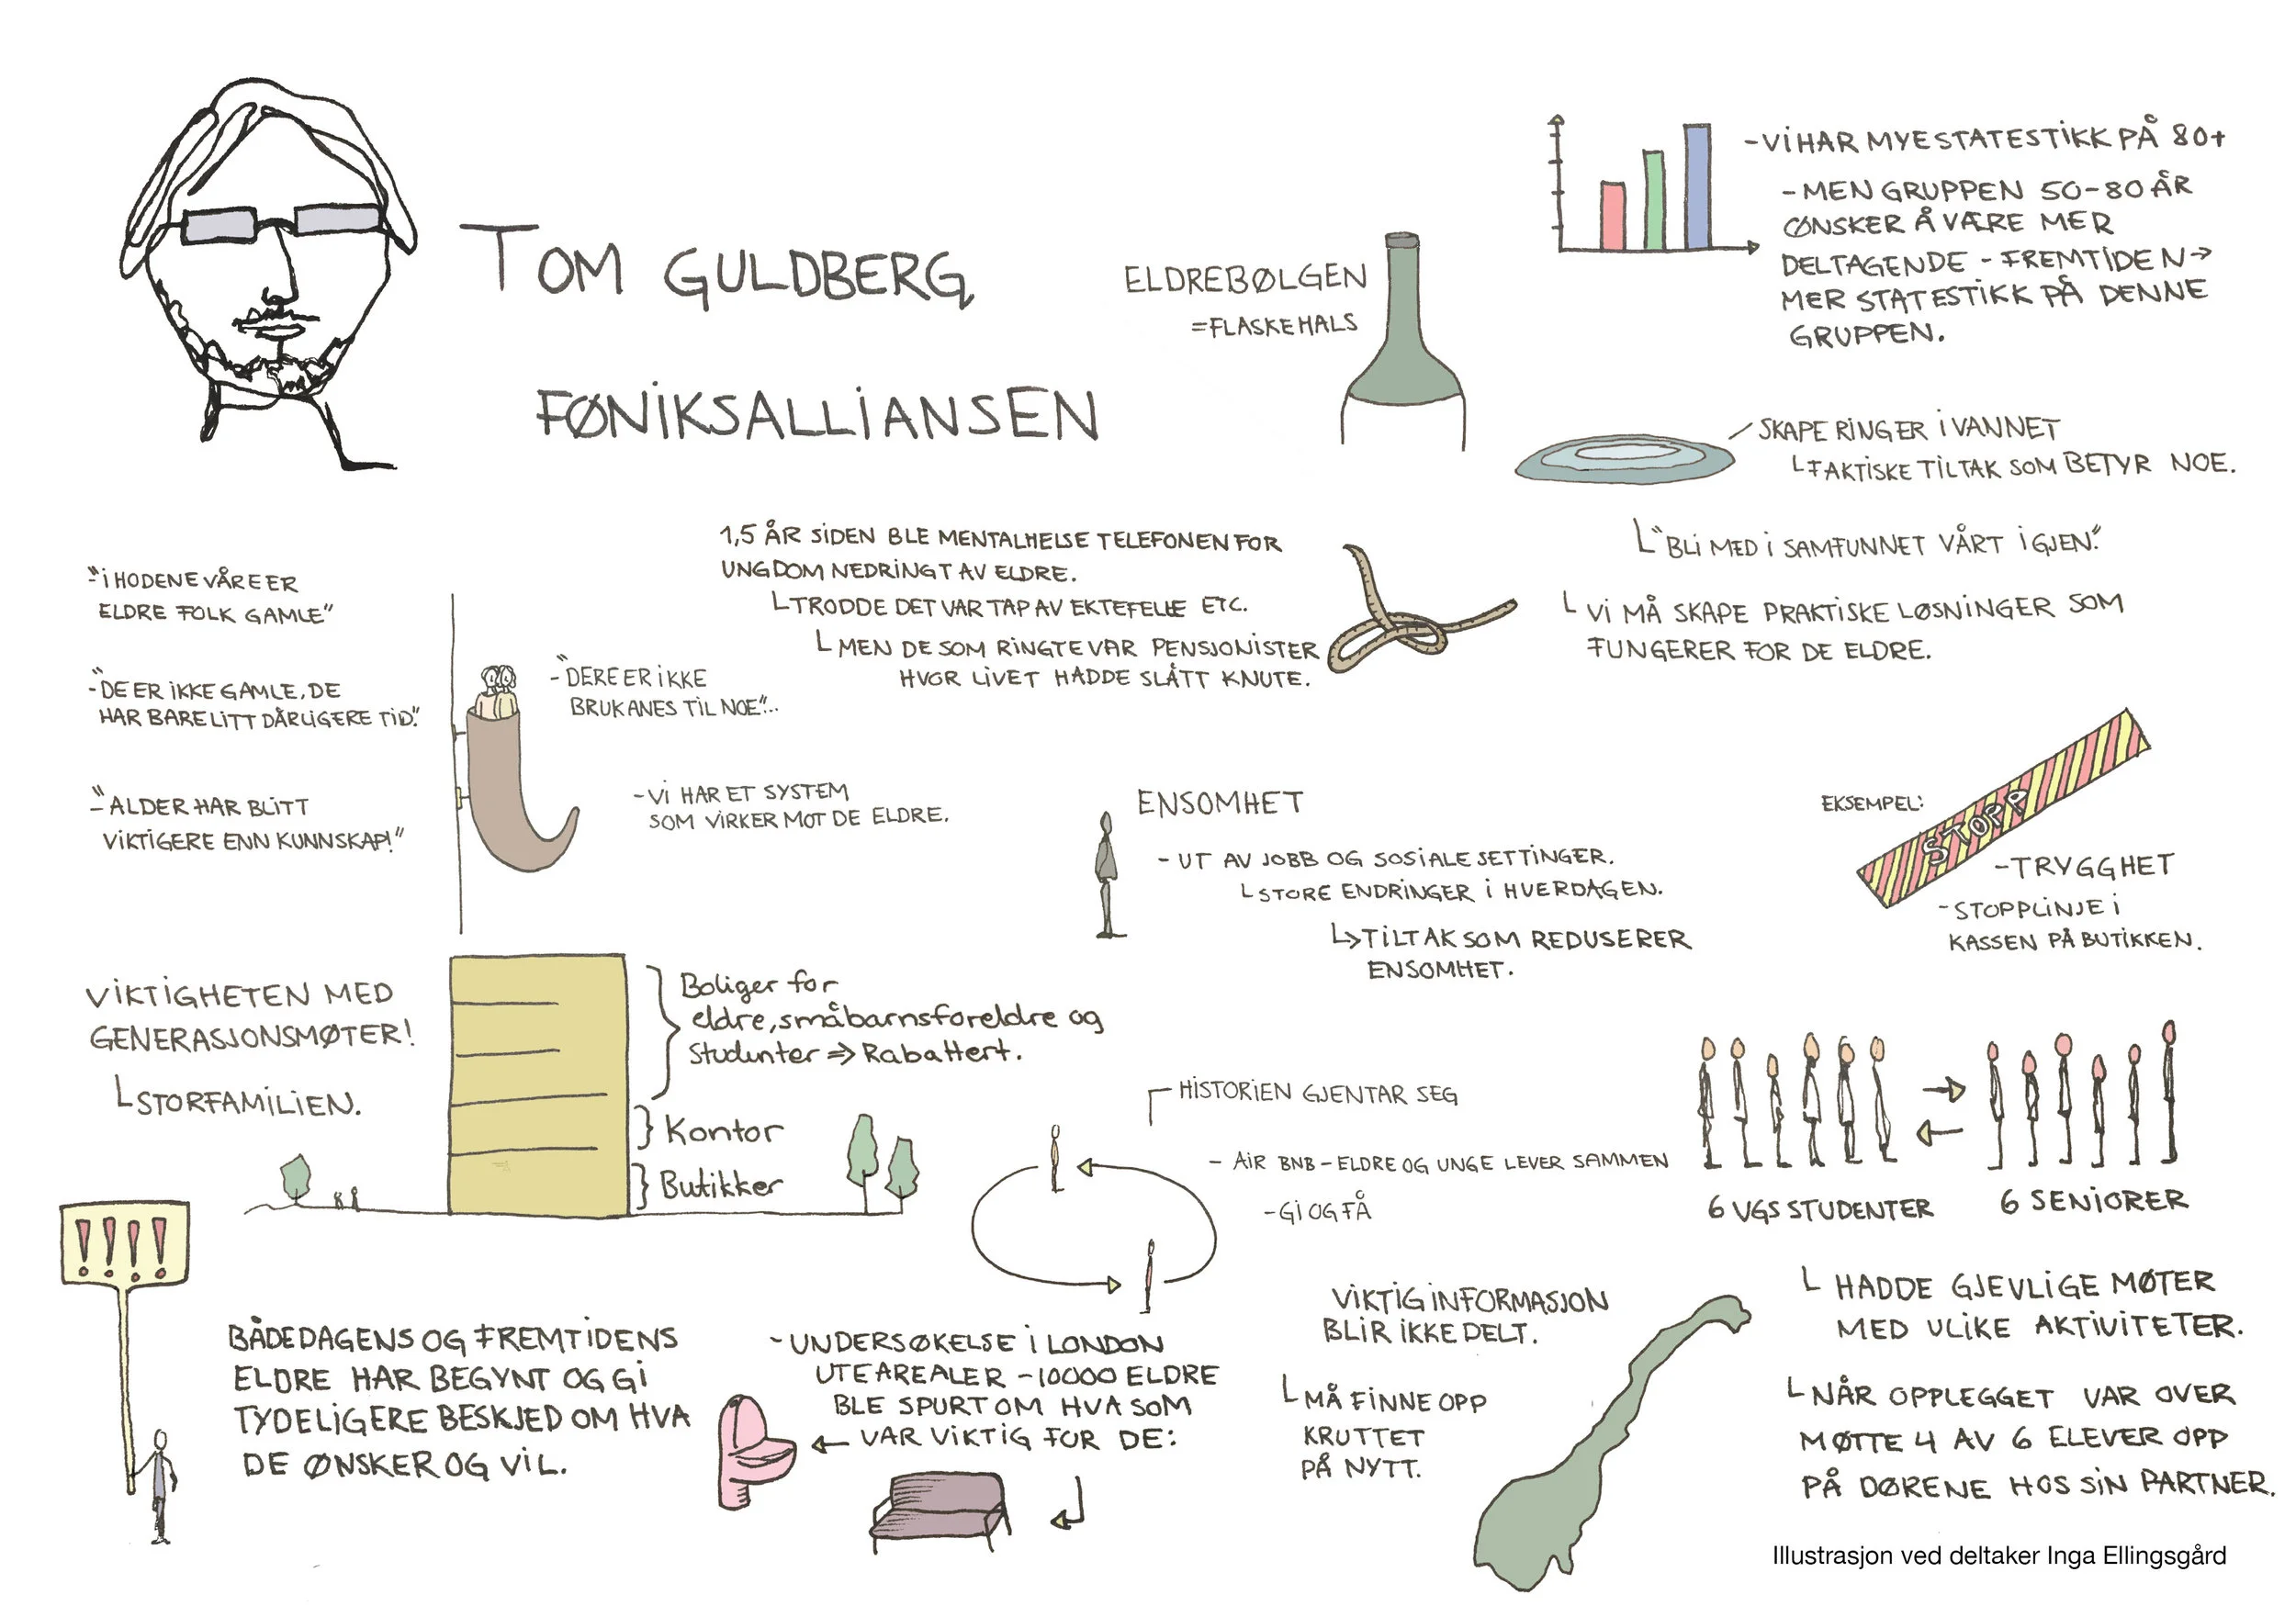 TOM GULDBERG
FØNIKSALLIANSEN
ELDREBØLGEN
=FLASKEHALS
-VI HAR MYE STATESTIKK PÅ 80+
-MEN GRUPPEN 50-80 ÅR
ØNSKER Å VÆRE MER
DELTAGENDE - FREMTIDEN→
MER STATESTIKK PÅ DENNE
GRUPPEN.
SKAPE RINGER I VANNET
FAKTISKE TILTAK SOM BETYR NOE.
"BLI MED I SAMFUNNET VÅRT IGJEN."
VI MÅ SKAPE PRAKTISKE LØSNINGER SOM
FUNGERER FOR DE ELDRE.
1,5 ÅR SIDEN BLE MENTALHELSE TELEFONEN FOR
UNGDOM NEDRINGT AV ELDRE.
TRODDE DET VAR TAP AV EKTEFELLE ETC.
MEN DE SOM RINGTE VAR PENSJONISTER
HVOR LIVET HADDE SLÅTT KNUTE.
-"I HODENE VÅRE ER
ELDRE FOLK GAMLE"
-"DE ER IKKE GAMLE, DE
HAR BARE LITT DÅRLIGERE TID."
-"ALDER HAR BLITT
VIKTIGERE ENN KUNNSKAP!"
-"DERE ER IKKE
BRUKANES TIL NOE"...
-VI HAR ET SYSTEM
SOM VIRKER MOT DE ELDRE.
ENSOMHET
- UT AV JOBB OG SOSIALE SETTINGER.
STORE ENDRINGER I HVERDAGEN.
TILTAK SOM REDUSERER
ENSOMHET.
EKSEMPEL:
STOPP
-TRYGGHET
-STOPPLINJE I
KASSEN PÅ BUTIKKEN.
VIKTIGHETEN MED
GENERASJONSMØTER!
STORFAMILIEN.
Boliger for
eldre, småbarnsforeldre og
Studenter => Rabattert.
Kontor
Butikker
HISTORIEN GJENTAR SEG
- AIR BNB - ELDRE OG UNGE LEVER SAMMEN
-GI OG FÅ
6 VGS STUDENTER
6 SENIORER
HADDE GJEVLIGE MØTER
MED ULIKE AKTIVITETER.
NÅR OPPLEGGET VAR OVER
MØTTE 4 AV 6 ELEVER OPP
PÅ DØRENE HOS SIN PARTNER.
!!!!
BÅDE DAGENS OG FREMTIDENS
ELDRE HAR BEGYNT OG GI
TYDELIGERE BESKJED OM HVA
DE ØNSKER OG VIL.
-UNDERSØKELSE I LONDON
UTEAREALER -10000 ELDRE
BLE SPURT OM HVA SOM
VAR VIKTIG FOR DE:
VIKTIG INFORMASJON
BLIR IKKE DELT.
MÅ FINNE OPP
KRUTTET
PÅ NYTT.
Illustrasjon ved deltaker Inga Ellingsgård